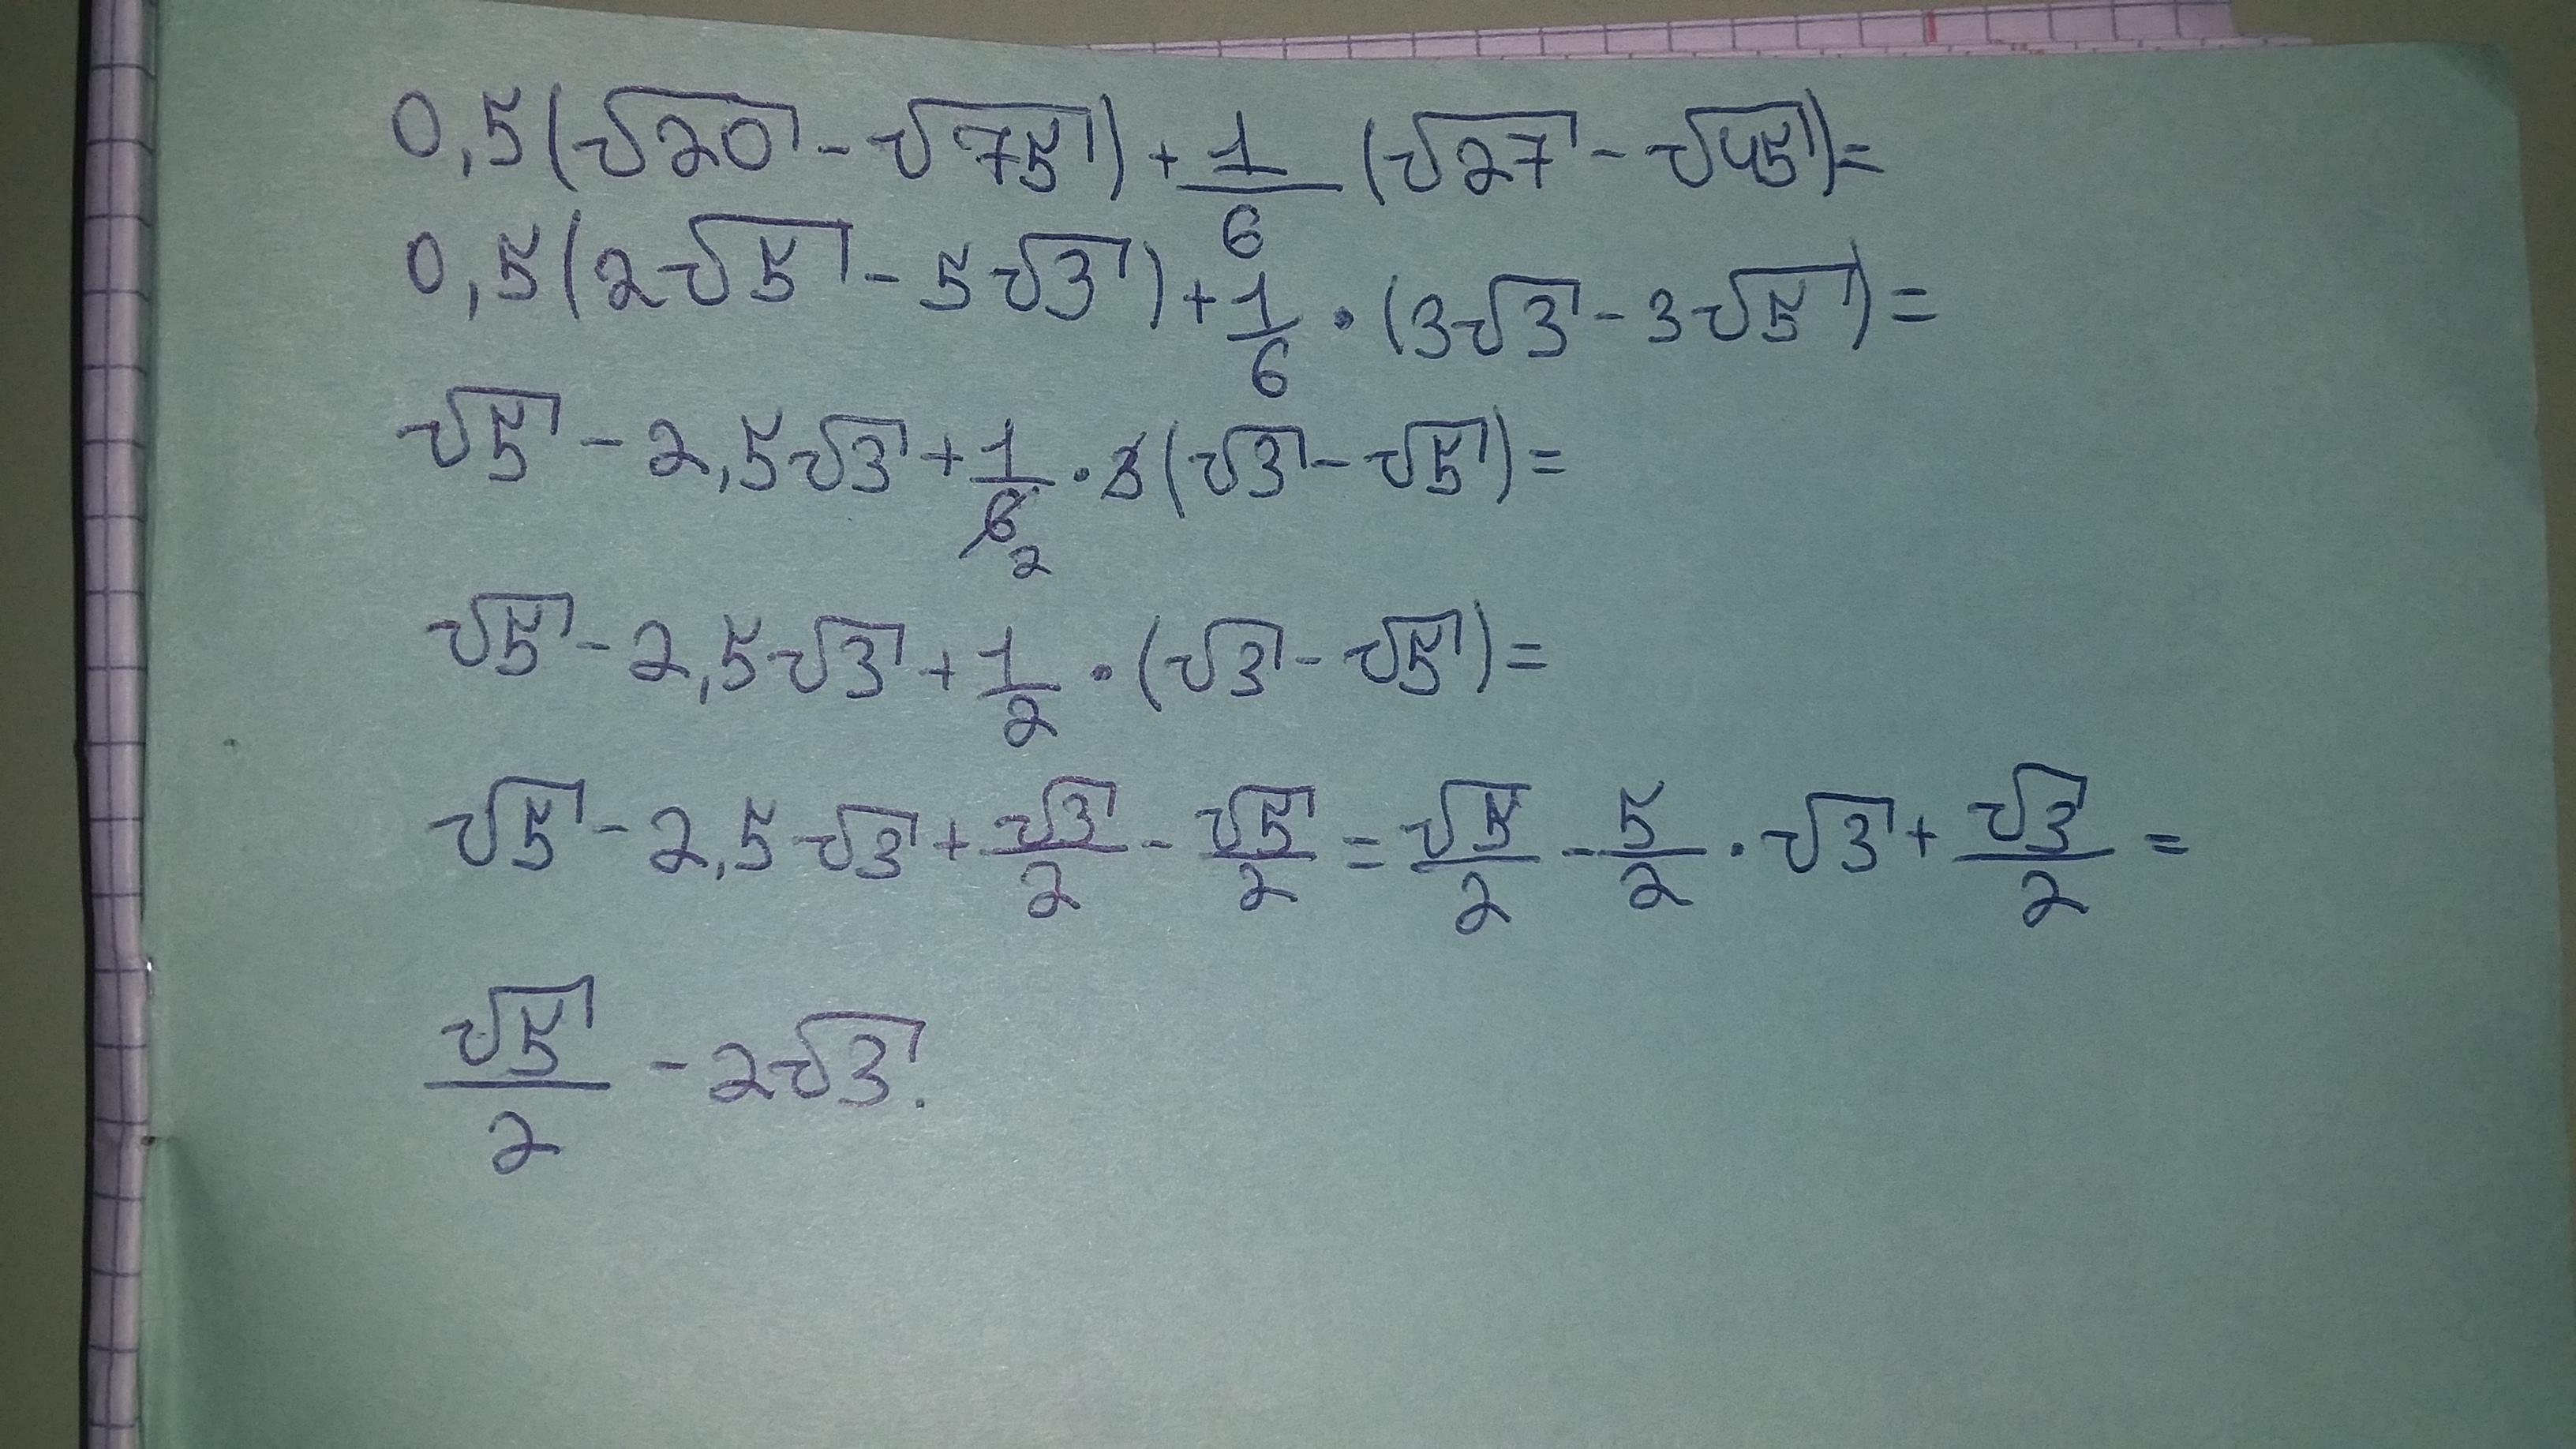 0,5(√20 - √75) + 1/6 (√27 - √45) =
0,5(2√5 - 5√3) + 1/6 · (3√3 - 3√5) =
√5 - 2,5√3 + 1/6 2 · 3(√3 - √5) =
√5 - 2,5·√3 + 1/2 · (√3 - √5) =
√5 - 2,5·√3 + √3/2 - √5/2 = √5/2 - 5/2 · √3 + √3/2 =
√5/2 - 2√3.